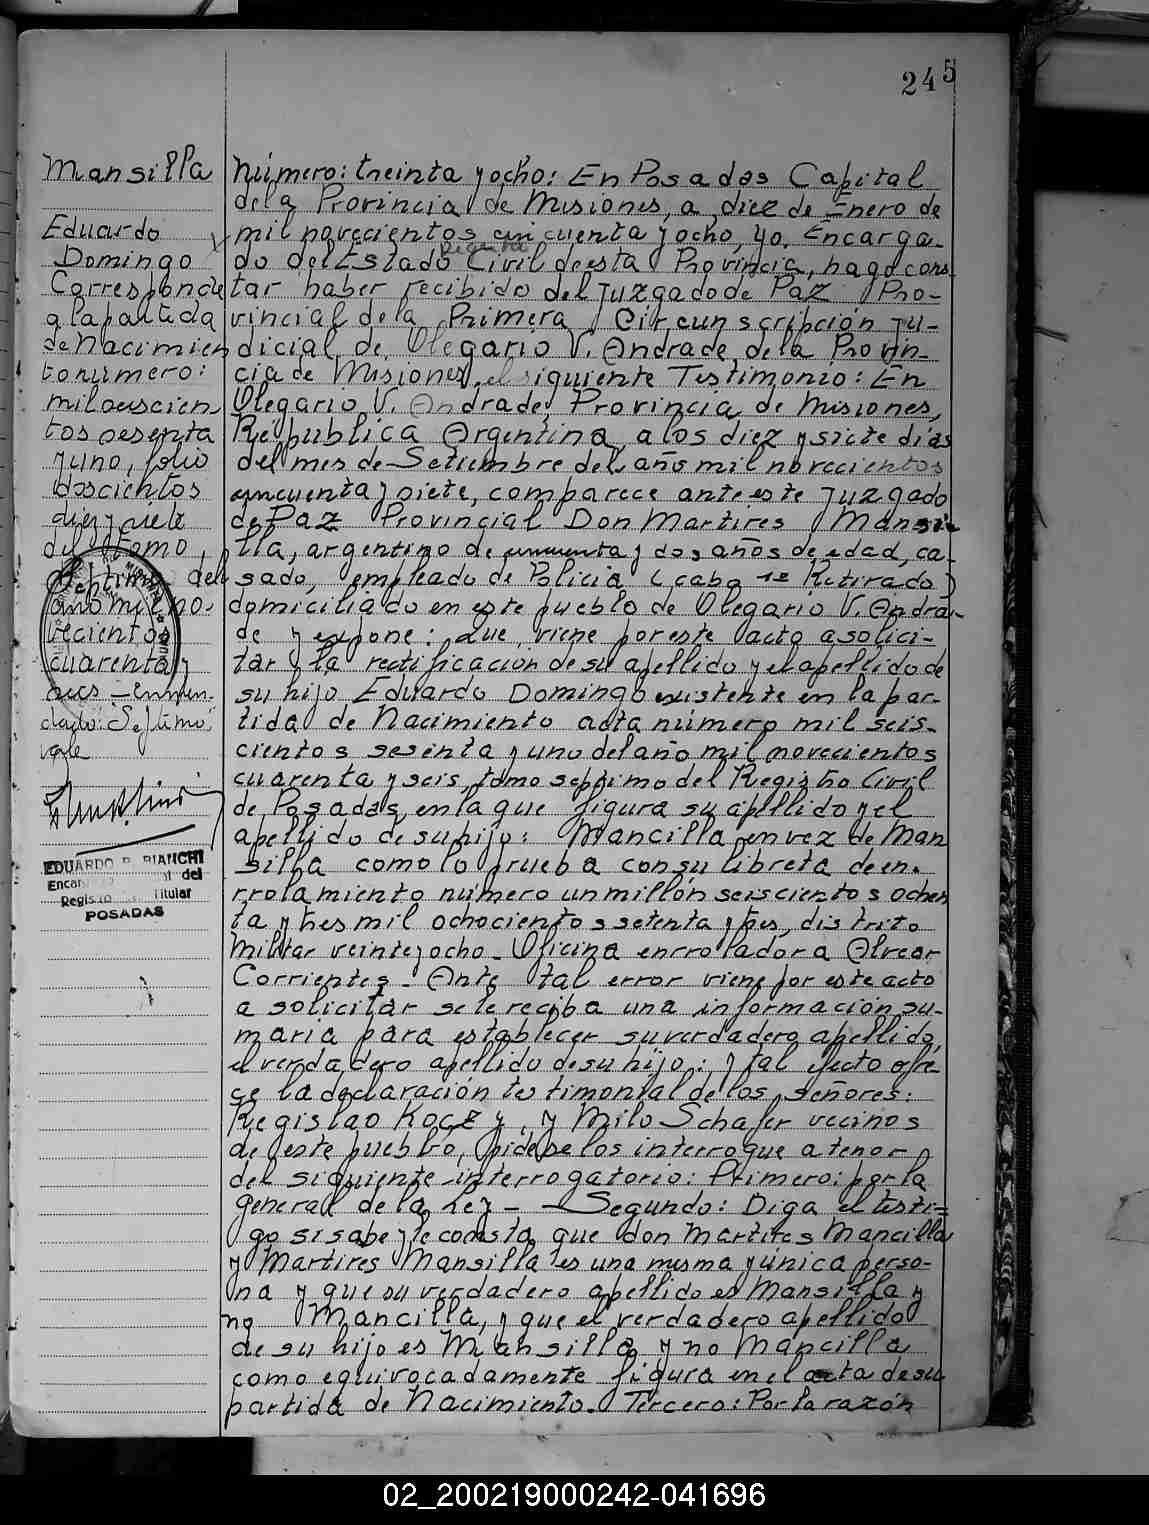 245
Mansilla
Eduardo
Domingo
Corresponde
a la partida
de Nacimien
to número:
mil seiscien
tos sesenta
y uno, folio
doscientos
diez y siete
del tomo,
Septimo del
año mil no-
vecientos
cuarenta y
seis - enmen-
dado: Septimo:
vale
EDUARDO R. BIANCHI
Titular
POSADAS
Número: treinta y ocho: En Posadas Capital
de la Provincia de Misiones, a diez de Enero de
mil novecientos cincuenta y ocho, yo, Encarga-
do del Estado Civil de esta Provincia, hago cons-
tar haber recibido del Juzgado de Paz Pro-
vincial de la Primera Circunscripción Ju-
dicial de Olegario V. Andrade de la Provin-
cia de Misiones, el siguiente Testimonio: En
Olegario V. Andrade, Provincia de Misiones,
República Argentina, a los diez y siete dias
del mes de Setiembre del año mil novecientos
cincuenta y siete, comparece ante este Juzgado
de Paz Provincial Don Martires Mansi-
lla, argentino de cincuenta y dos años de edad, ca-
sado, empleado de Policia (cabo 1º Retirado)
domiciliado en este pueblo de Olegario V. Andra-
de y expone: Que viene por este acto a solici-
tar la rectificación de su apellido y el apellido de
su hijo Eduardo Domingo existente en la par-
tida de Nacimiento acta número mil seis-
cientos sesenta y uno del año mil novecientos
cuarenta y seis, tomo septimo del Registro Civil
de Posadas, en la que figura su apellido y el
apellido de su hijo: Mancilla en vez de Man
silla como lo prueba con su libreta de en-
rrolamiento número un millón seiscientos ochen
ta y tres mil ochocientos setenta y tres, distrito
Militar veinte y ocho - Oficina enrroladora Alvear
Corrientes - Ante tal error viene por este acto
a solicitar se le reciba una información su-
maria para establecer su verdadero apellido,
el verdadero apellido de su hijo: y tal efecto ofre-
ce la declaración testimonial de los señores:
Regislao Koczy, y Milo Schafer vecinos
de este pueblo, pidese los interrogue a tenor
del siguiente interrogatorio: Primero: por la
general de la Ley - - Segundo: Diga el testi-
go si sabe y le consta que don Martires Mancilla
y Martires Mansilla es una misma y única perso-
na y que su verdadero apellido es Mansilla y
no Mancilla, y que el verdadero apellido
de su hijo es Mansilla y no Mancilla
como equivocadamente figura en el acta de su
partida de Nacimiento. Tercero: Por la razón
02_200219000242-041696